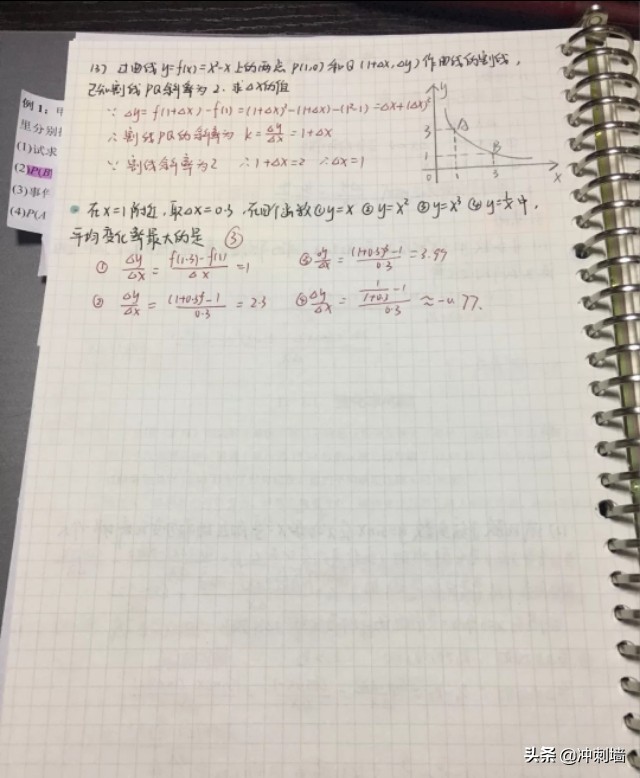 例1:甲
里分别
(1)试求
(2)P(B)
(3)事件
(4)P(A
(3) 过曲线 y=f(x)=x²-x上的两点 P(1,0) 和Q (1+Δx,Δy)作曲线的割线,
已知割线PQ斜率为2.求Δx的值
∵ Δy=f(1+Δx)-f(1)=(1+Δx)²-(1+Δx)-(1²-1)=Δx+(Δx)²
∴ 割线PQ的斜率为 k=Δy/Δx=1+Δx
∵ 割线斜率为2 ∴1+Δx=2 ∴Δx=1
y
3 A
1 B
0 1 3 x
在x=1附近,取Δx=0.3,在四个函数①y=x ②y=x² ③y=x³ ④y=1/x中,
平均变化率最大的是 ③
① Δy/Δx = (f(1.3)-f(1))/Δx =1 ③ Δy/Δx = ((1+0.3)³-1)/0.3 =3.99
② Δy/Δx = ((1+0.3)²-1)/0.3 = 2.3 Δy/Δx = (1/(1+0.3)-1)/0.3 ≈-0.77.
头条 @冲刺墙